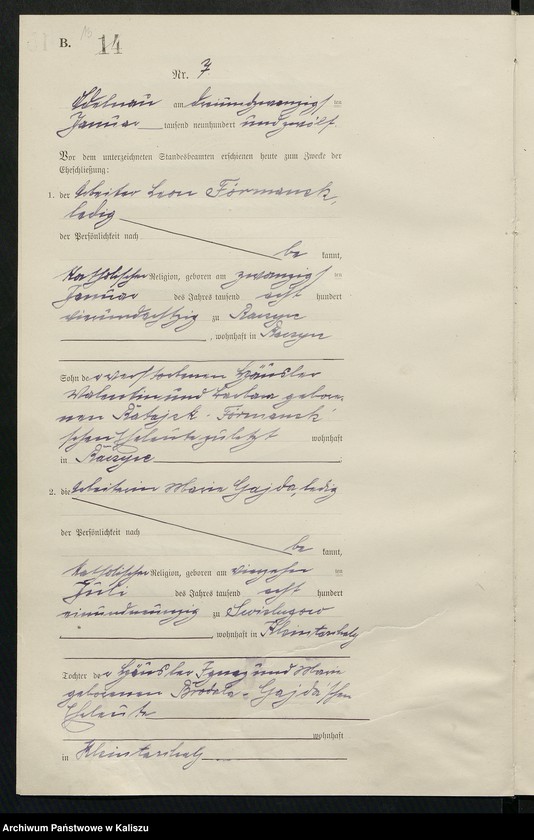 B. 14
Nr. 7
Adelnau am dreiundzwanzigsten
Januar tausend neunhundert und zwölf
Vor dem unterzeichneten Standesbeamten erschienen heute zum Zwecke der
Eheschließung:
1. der Arbeiter Leon Formanek,
ledig
der Persönlichkeit nach
be kannt,
katholischer Religion, geboren am zwanzigsten
Januar des Jahres tausend acht hundert
vierundachtzig zu
, wohnhaft in
Sohn der verstorbenen Häusler
Valentin und Barbara gebore-
nen Ratajek - Formanek
schen Eheleute zuletzt wohnhaft
in
2. die Arbeiterin Marie Gajda, ledig
der Persönlichkeit nach
be kannt,
katholischer Religion, geboren am vierzehnten
Juli des Jahres tausend acht hundert
einundneunzig zu
, wohnhaft in
Tochter der Häusler Ignaz und Marie
geborenen Brodala - Gajda schen
Eheleute
wohnhaft
in
Archiwum Państwowe w Kaliszu